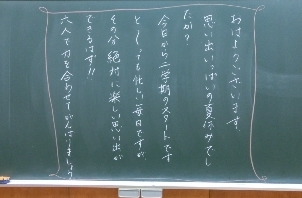 おはようございます。
思い出いっぱいの夏休みでし
たか?
今日から二学期のスタートです
とーっても忙しい毎日ですが、
その分絶対に楽しい思い出が
できるはず!!
六人で力を合わせてがんばりましょう